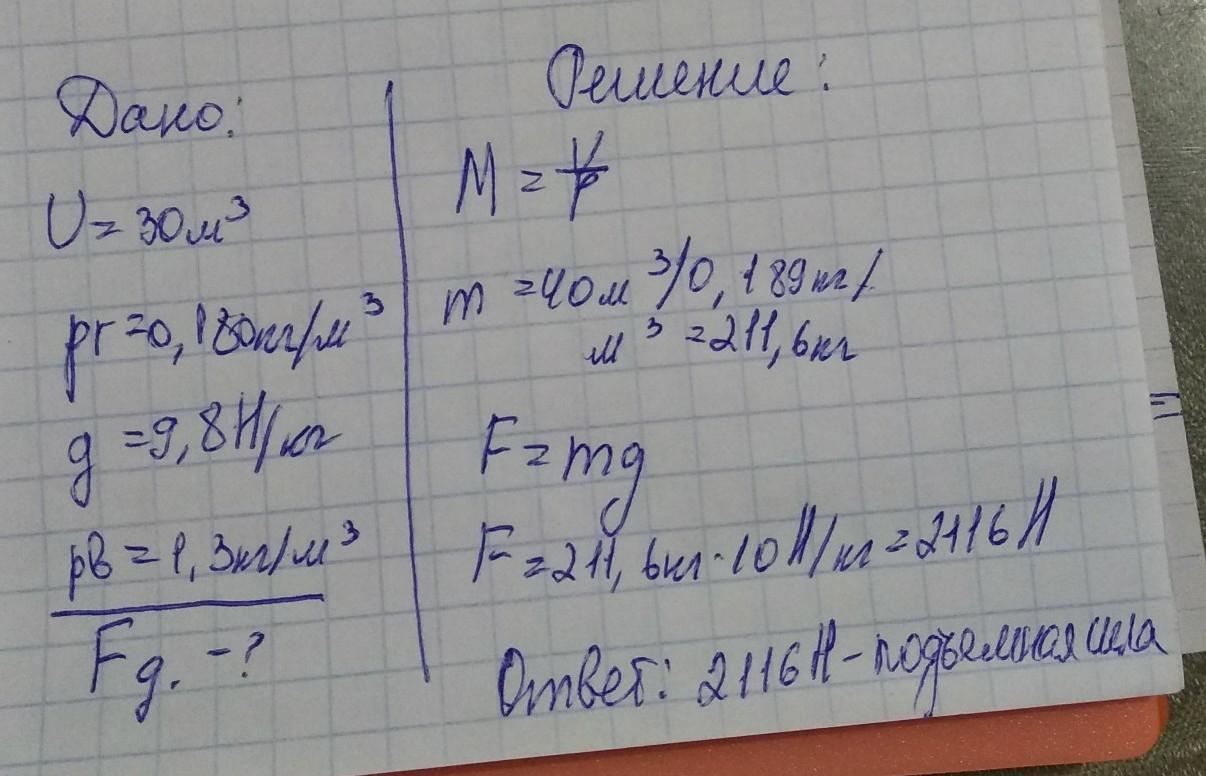 Дано:
V = 30м³
ρг = 0,180кг/м³
g = 9,8Н/кг
ρв = 1,3кг/м³
Fg. - ?
Решение:
M = V/ρ
m = 40м³/0,189кг/
м³ = 211,6кг
F = mg
F = 211,6кг · 10Н/кг = 2116Н
Ответ: 2116Н - подъемная сила
=